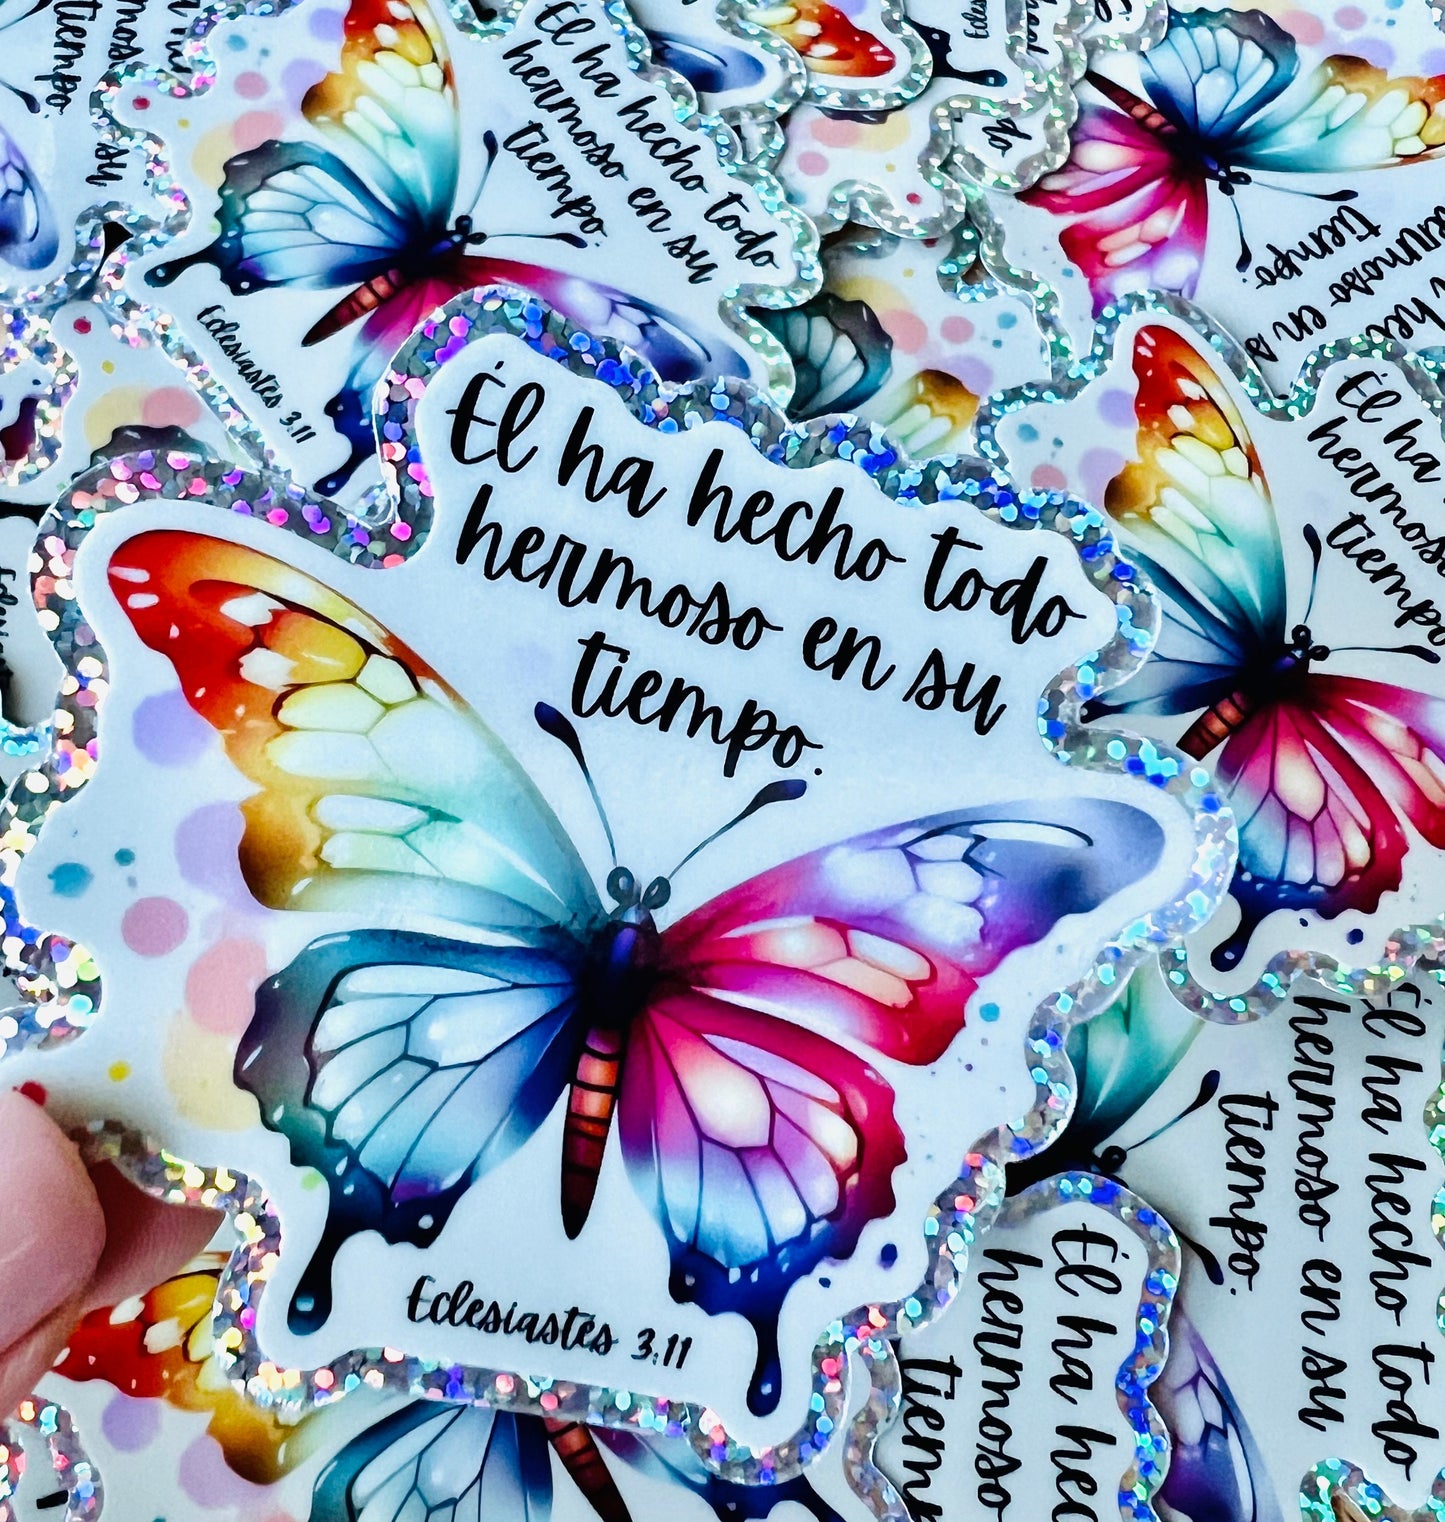 Él ha hecho todo
hermoso en su
tiempo.
Eclesiastés 3:11
Él ha hecho todo
hermoso en su
tiempo.
Eclesiastés 3:11
Él ha
hermoso
tiempo.
Él ha hecho todo
hermoso en su
tiempo.
Él ha
hermoso
tiempo.
hermoso en